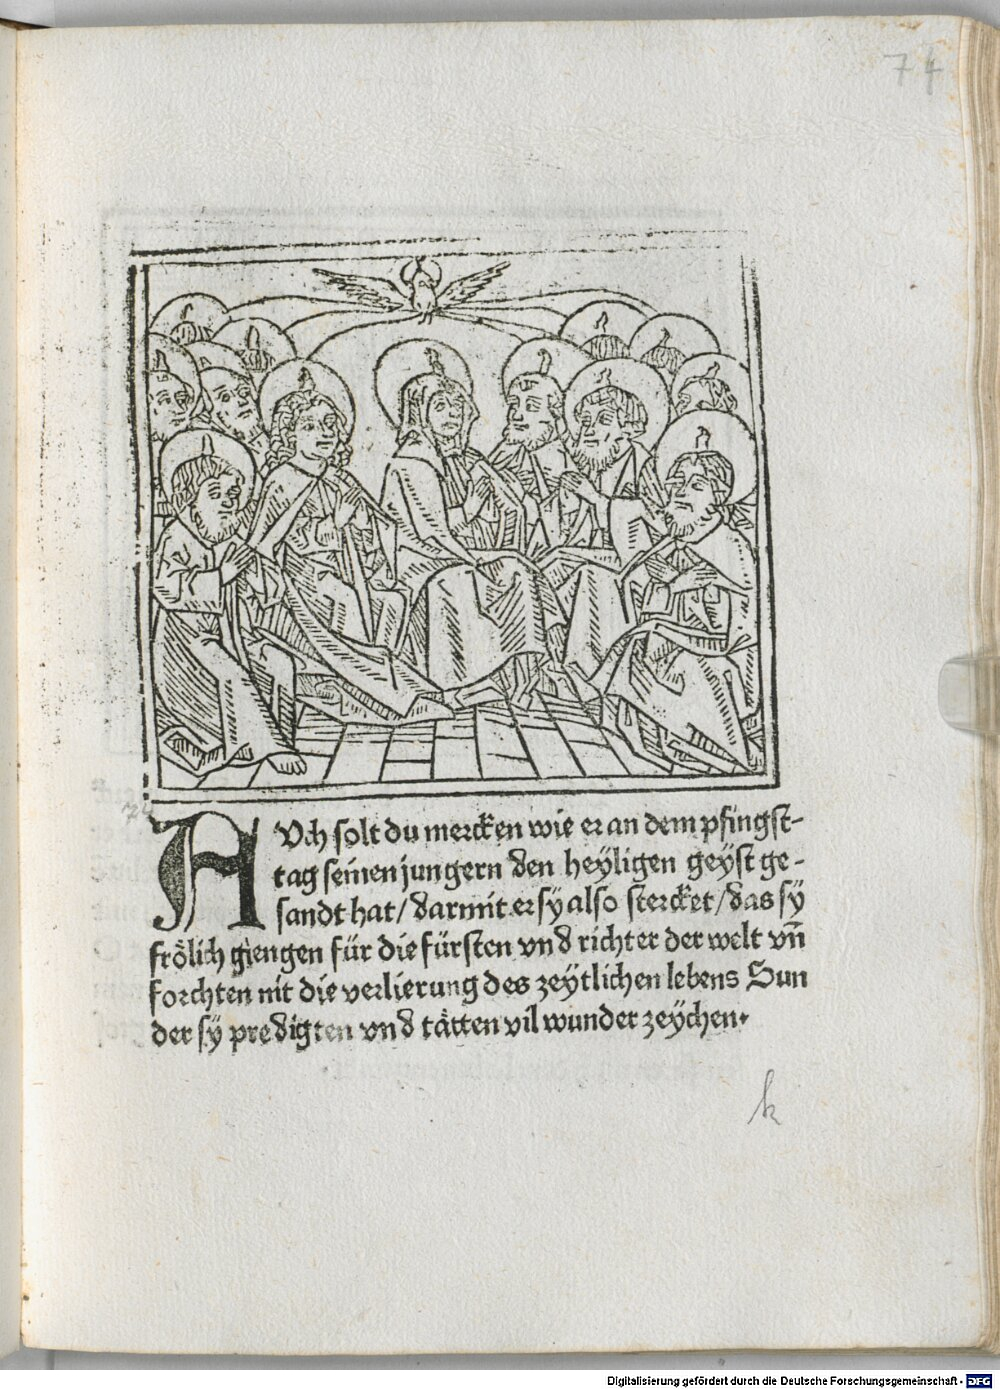 74
74
AUch solt du mercken wie er an dem pfingst-
tag seinen jungern den heÿligen geÿst ge-
sandt hat/ darmit er sÿ also stercket/ das sÿ
froͤlich giengen für die fürsten vnd richter der welt vn̄
forchten nit die verlierung des zeÿtlichen lebens Sun
der sÿ predigten vnd taͤtten vil wunder zeÿchen.
k
Digitalisierung gefördert durch die Deutsche Forschungsgemeinschaft - DFG